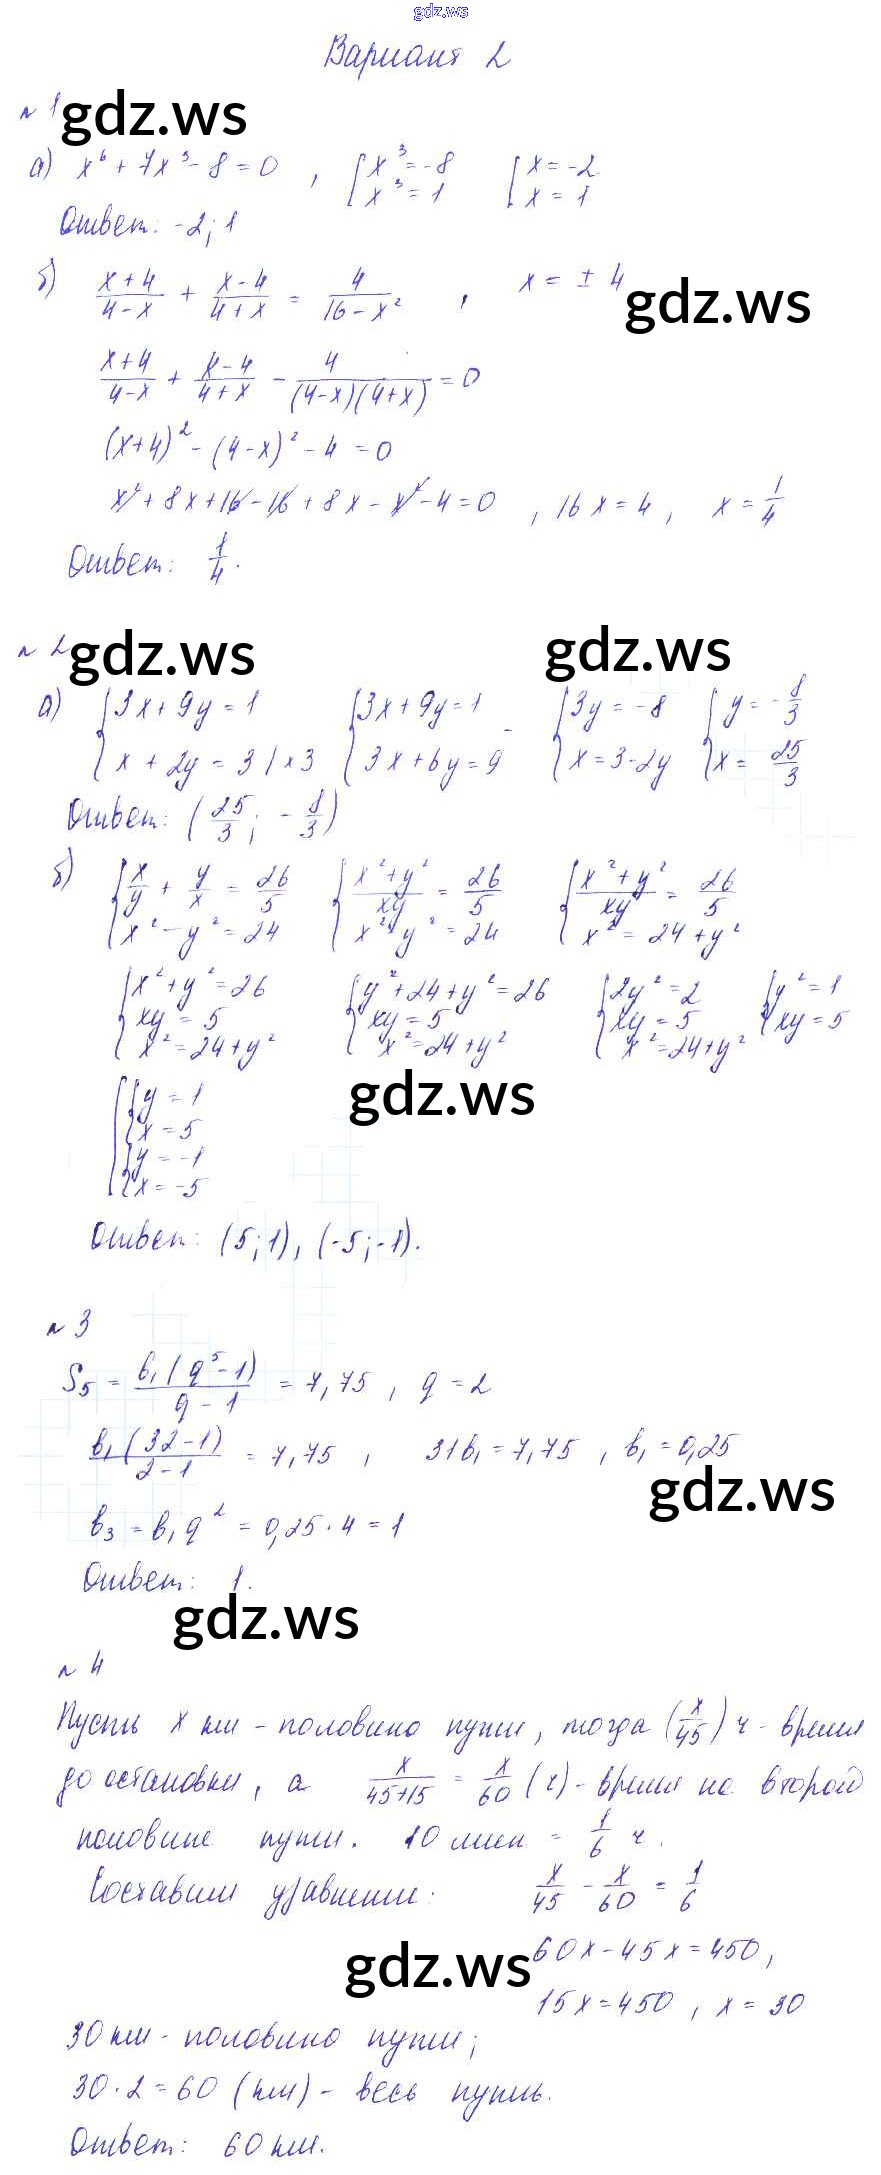 gdz.ws
Вариант 2
№ 1 gdz.ws
а) x⁶ + 7x³ - 8 = 0 , [ x³ = -8 x³ = 1 [ x = -2 x = 1
Ответ: -2; 1
б) (x+4)/(4-x) + (x-4)/(4+x) = 4/(16-x²) , x = ± 4
gdz.ws
(x+4)/(4-x) + (x-4)/(4+x) - 4/((4-x)(4+x)) = 0
(x+4)² - (4-x)² - 4 = 0
x² + 8x + 16 - 16 + 8x - x² - 4 = 0 , 16x = 4 , x = 1/4
Ответ: 1/4.
№ 2 gdz.ws gdz.ws
а) { 3x + 9y = 1 x + 2y = 3 | ×3 { 3x + 9y = 1 3x + 6y = 9 - { 3y = -8 x = 3 - 2y { y = -8/3 x = 25/3
Ответ: (25/3; -8/3)
б) { x/y + y/x = 26/5 x² - y² = 24 { (x²+y²)/xy = 26/5 x² - y² = 24 { (x²+y²)/xy = 26/5 x² = 24 + y²
{ x² + y² = 26 xy = 5 x² = 24 + y² { y² + 24 + y² = 26 xy = 5 x² = 24 + y² { 2y² = 2 xy = 5 x² = 24 + y² { y² = 1 xy = 5
gdz.ws
[ { y = 1 x = 5 { y = -1 x = -5
Ответ: (5; 1), (-5; -1).
№ 3
S₅ = b₁(q⁵-1)/(q-1) = 7,75 , q = 2
b₁(32-1)/(2-1) = 7,75 , 31b₁ = 7,75 , b₁ = 0,25
gdz.ws
b₃ = b₁q² = 0,25 · 4 = 1
Ответ: 1.
gdz.ws
№ 4
Пусть x км - половина пути, тогда (x/45) ч - время
до остановки, а x/(45+15) = x/60 (ч) - время на второй
половине пути. 10 мин = 1/6 ч.
Составим уравнение: x/45 - x/60 = 1/6
gdz.ws 60x - 45x = 450,
15x = 450 , x = 30
30 км - половина пути;
30 · 2 = 60 (км) - весь путь.
Ответ: 60 км.